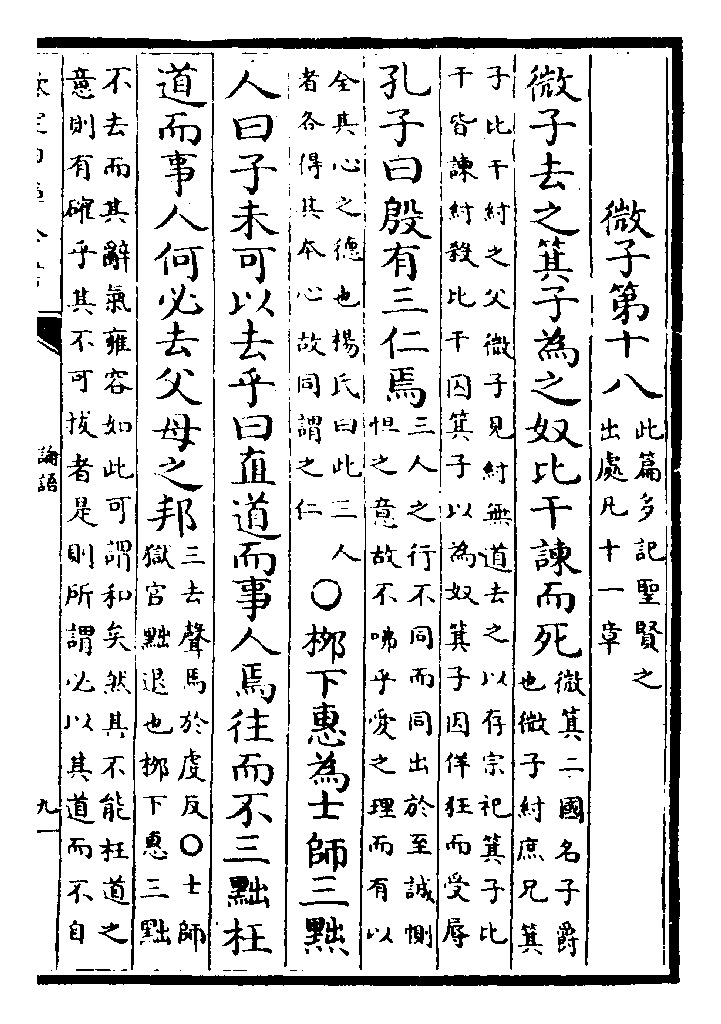 微子第十八
此篇多記聖賢之
出處凡十一章
微子去之箕子為之奴比干諫而死
微箕二國名子爵
也微子紂庶兄箕
子比干紂之父微子見紂無道去之以存宗祀箕子比
干皆諫紂殺比干囚箕子以為奴箕子因佯狂而受辱
孔子曰殷有三仁焉
三人之行不同而同出於至誠惻
怛之意故不咈乎愛之理而有以
全其心之德也楊氏曰此三人
者各得其夲心故同謂之仁
○柳下惠為士師三黜
人曰子未可以去乎曰直道而事人焉往而不三黜枉
道而事人何必去父母之邦
三去聲焉於虔反○士師
獄官黜退也柳下惠三黜
不去而其辭氣雍容如此可謂和矣然其不能枉道之
意則有確乎其不可拔者是則所謂必以其道而不自
論語